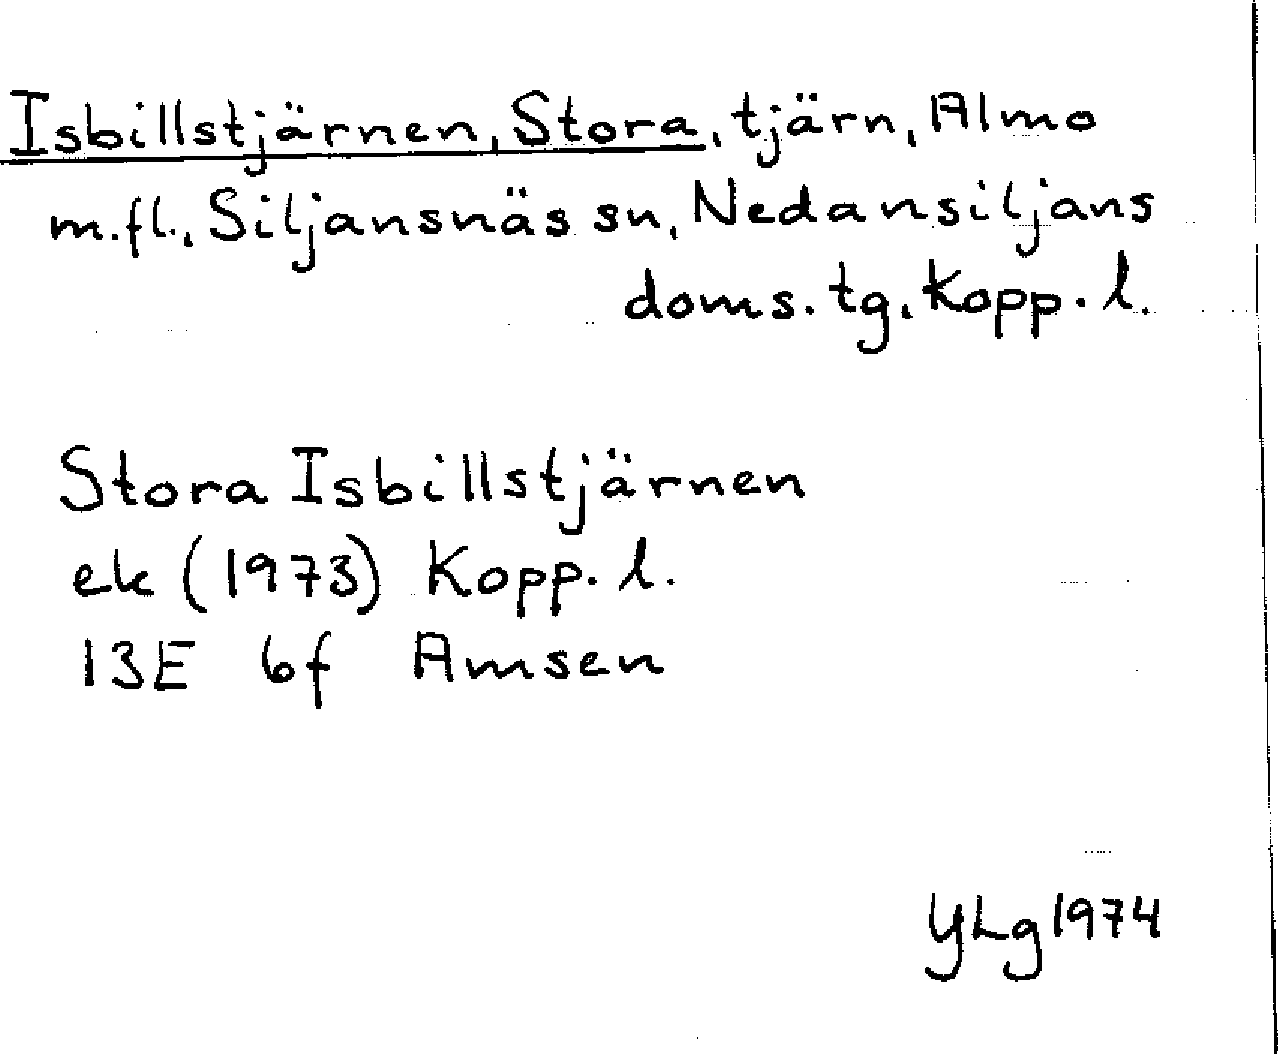 Isbillstjärnen, Stora, tjärn, Almo
m.fl., Siljansnäs sn, Nedansiljans
doms. tg, Kopp. l.
Stora Isbillstjärnen
ek (1973) Kopp. l.
13E 6f Amsen
YLg 1974